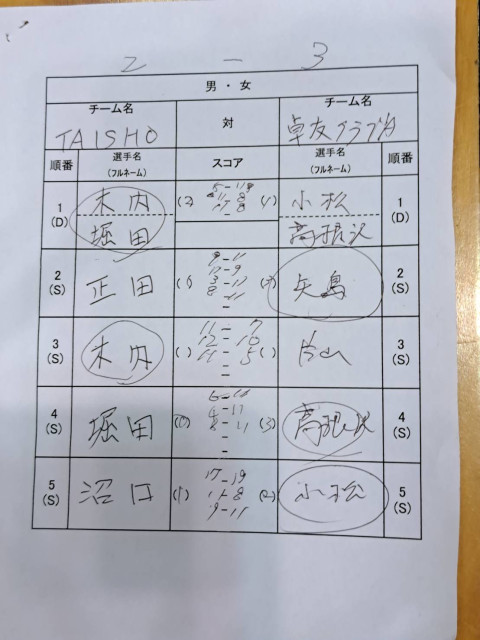 2 - 3
男・女
チーム名
対
チーム名
TAISHO
卓友クラブA
順番
選手名
(フルネーム)
スコア
選手名
(フルネーム)
順番
1
(D)
木内
堀田
(2)
11 - 8
(1)
小松
高根沢
1
(D)
2
(S)
正田
(1)
9 - 11
矢島
2
(S)
3
(S)
木内
11 - 7
12 - 10
11 - 5
片山
3
(S)
4
(S)
堀田
(0)
6 - 11
4 - 11
8 - 11
(3)
高根沢
4
(S)
5
(S)
沼口
(1)
17 - 19
11 - 8
9 - 11
(2)
小松
5
(S)